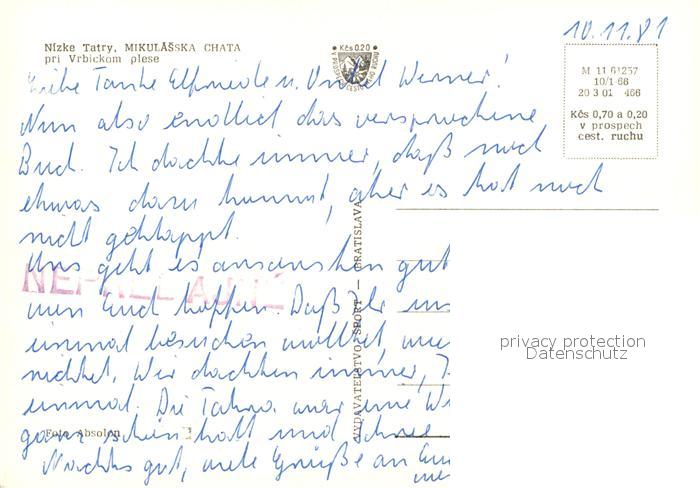 10.11.81
Nízke Tatry, MIKULÁŠSKA CHATA
pri Vrbickom plese
Kčs 0.20
M 11 61257
10/1-68
20 3 01 466
Kčs 0,70 a 0,20
v prospech
cest. ruchu
Liebe Tante Elfriede u. Onkel Werner!
Nun also endlich das versprochene
Buch. Ich dachte immer, daß noch
etwas dazu kommt, aber es hat noch
nicht geklappt.
Uns geht es ansonsten gut
von Euch hoffen. Daß Ihr uns
einmal besuchen wolltet,
Wir dachten immer,
einmal. Die Tatra war eine
ganz schön kalt und
Nachts gut, viele Grüße an
VYDAVATEĽSTVO ŠPORT — BRATISLAVA
Foto Absolon
privacy protection
Datenschutz